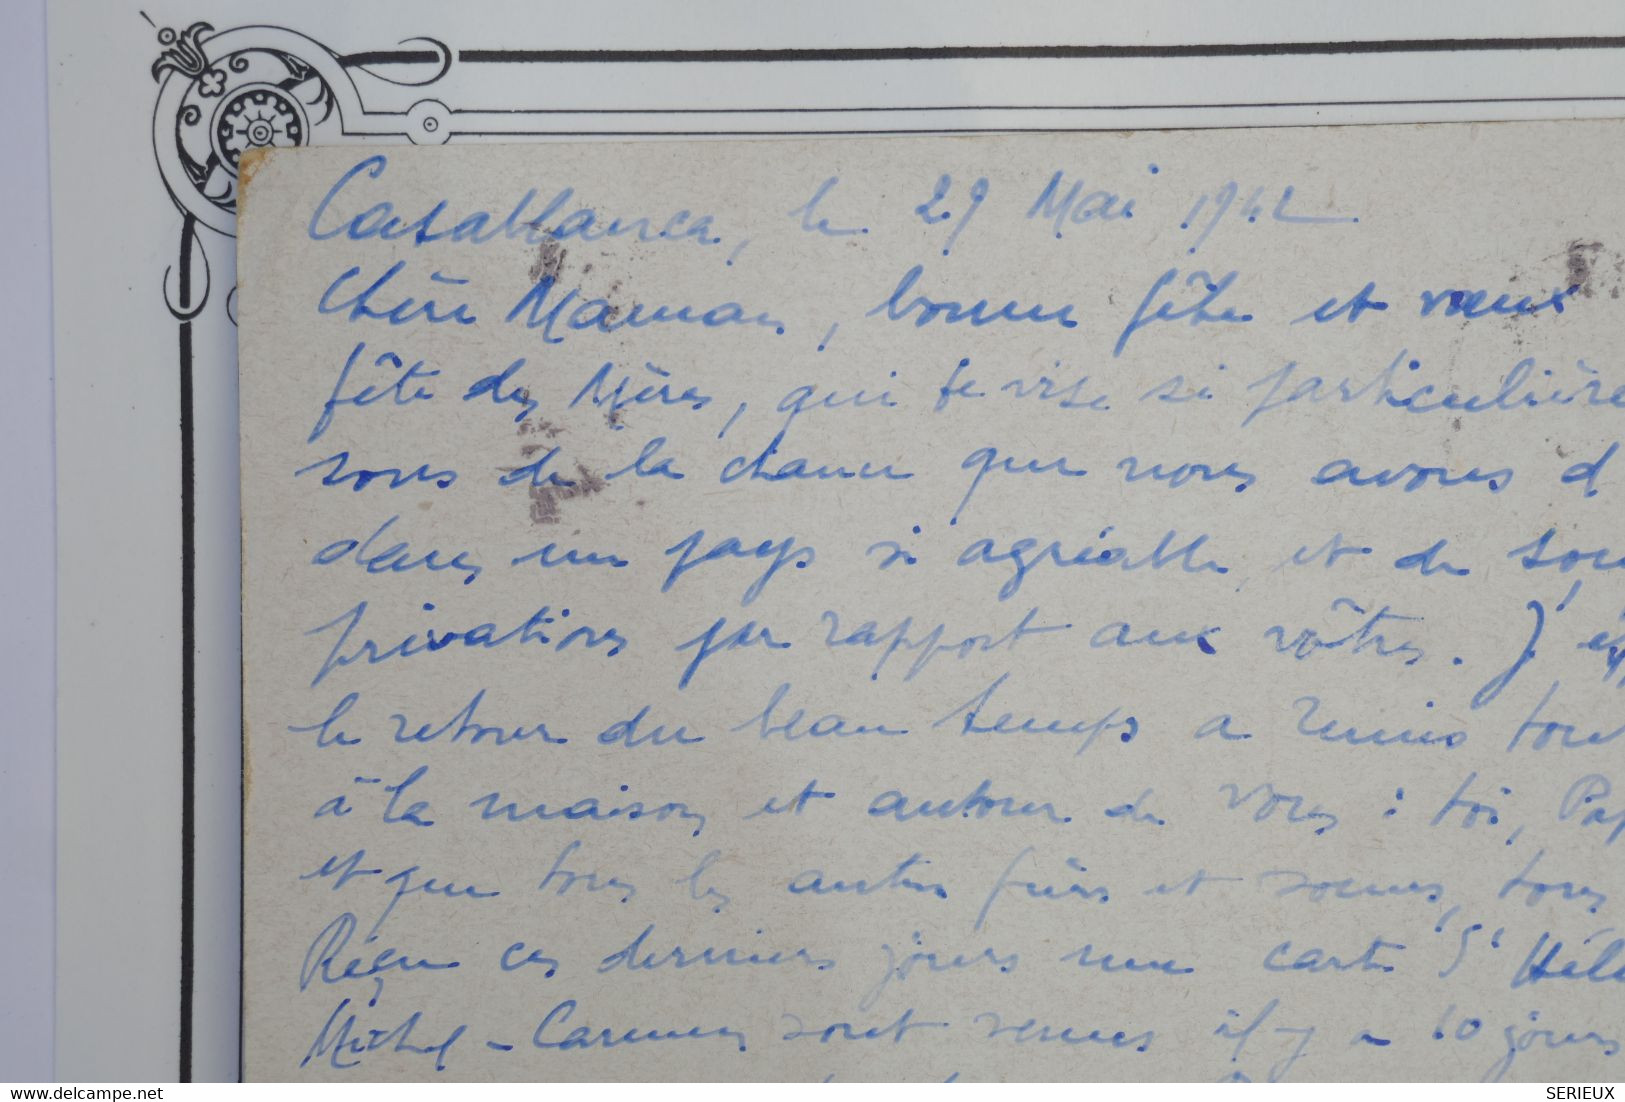 Casablanca, le 29 Mai 1942
Chère Maman, bonne fête et vœux
fête des Mères, qui te vise si particulière
sons de la chance que nous avons d
dans un pays si agréable, et de
privations par rapport aux vôtres. J'
le retour du beau temps a remis tout
à la maison et autour de vous : toi, Pap
et que tous les autres frères et soeurs, tous
Reçu ces derniers jours une carte d' Hélè
Michel - Carmen sont venus il y a 10 jours
SERIEUX